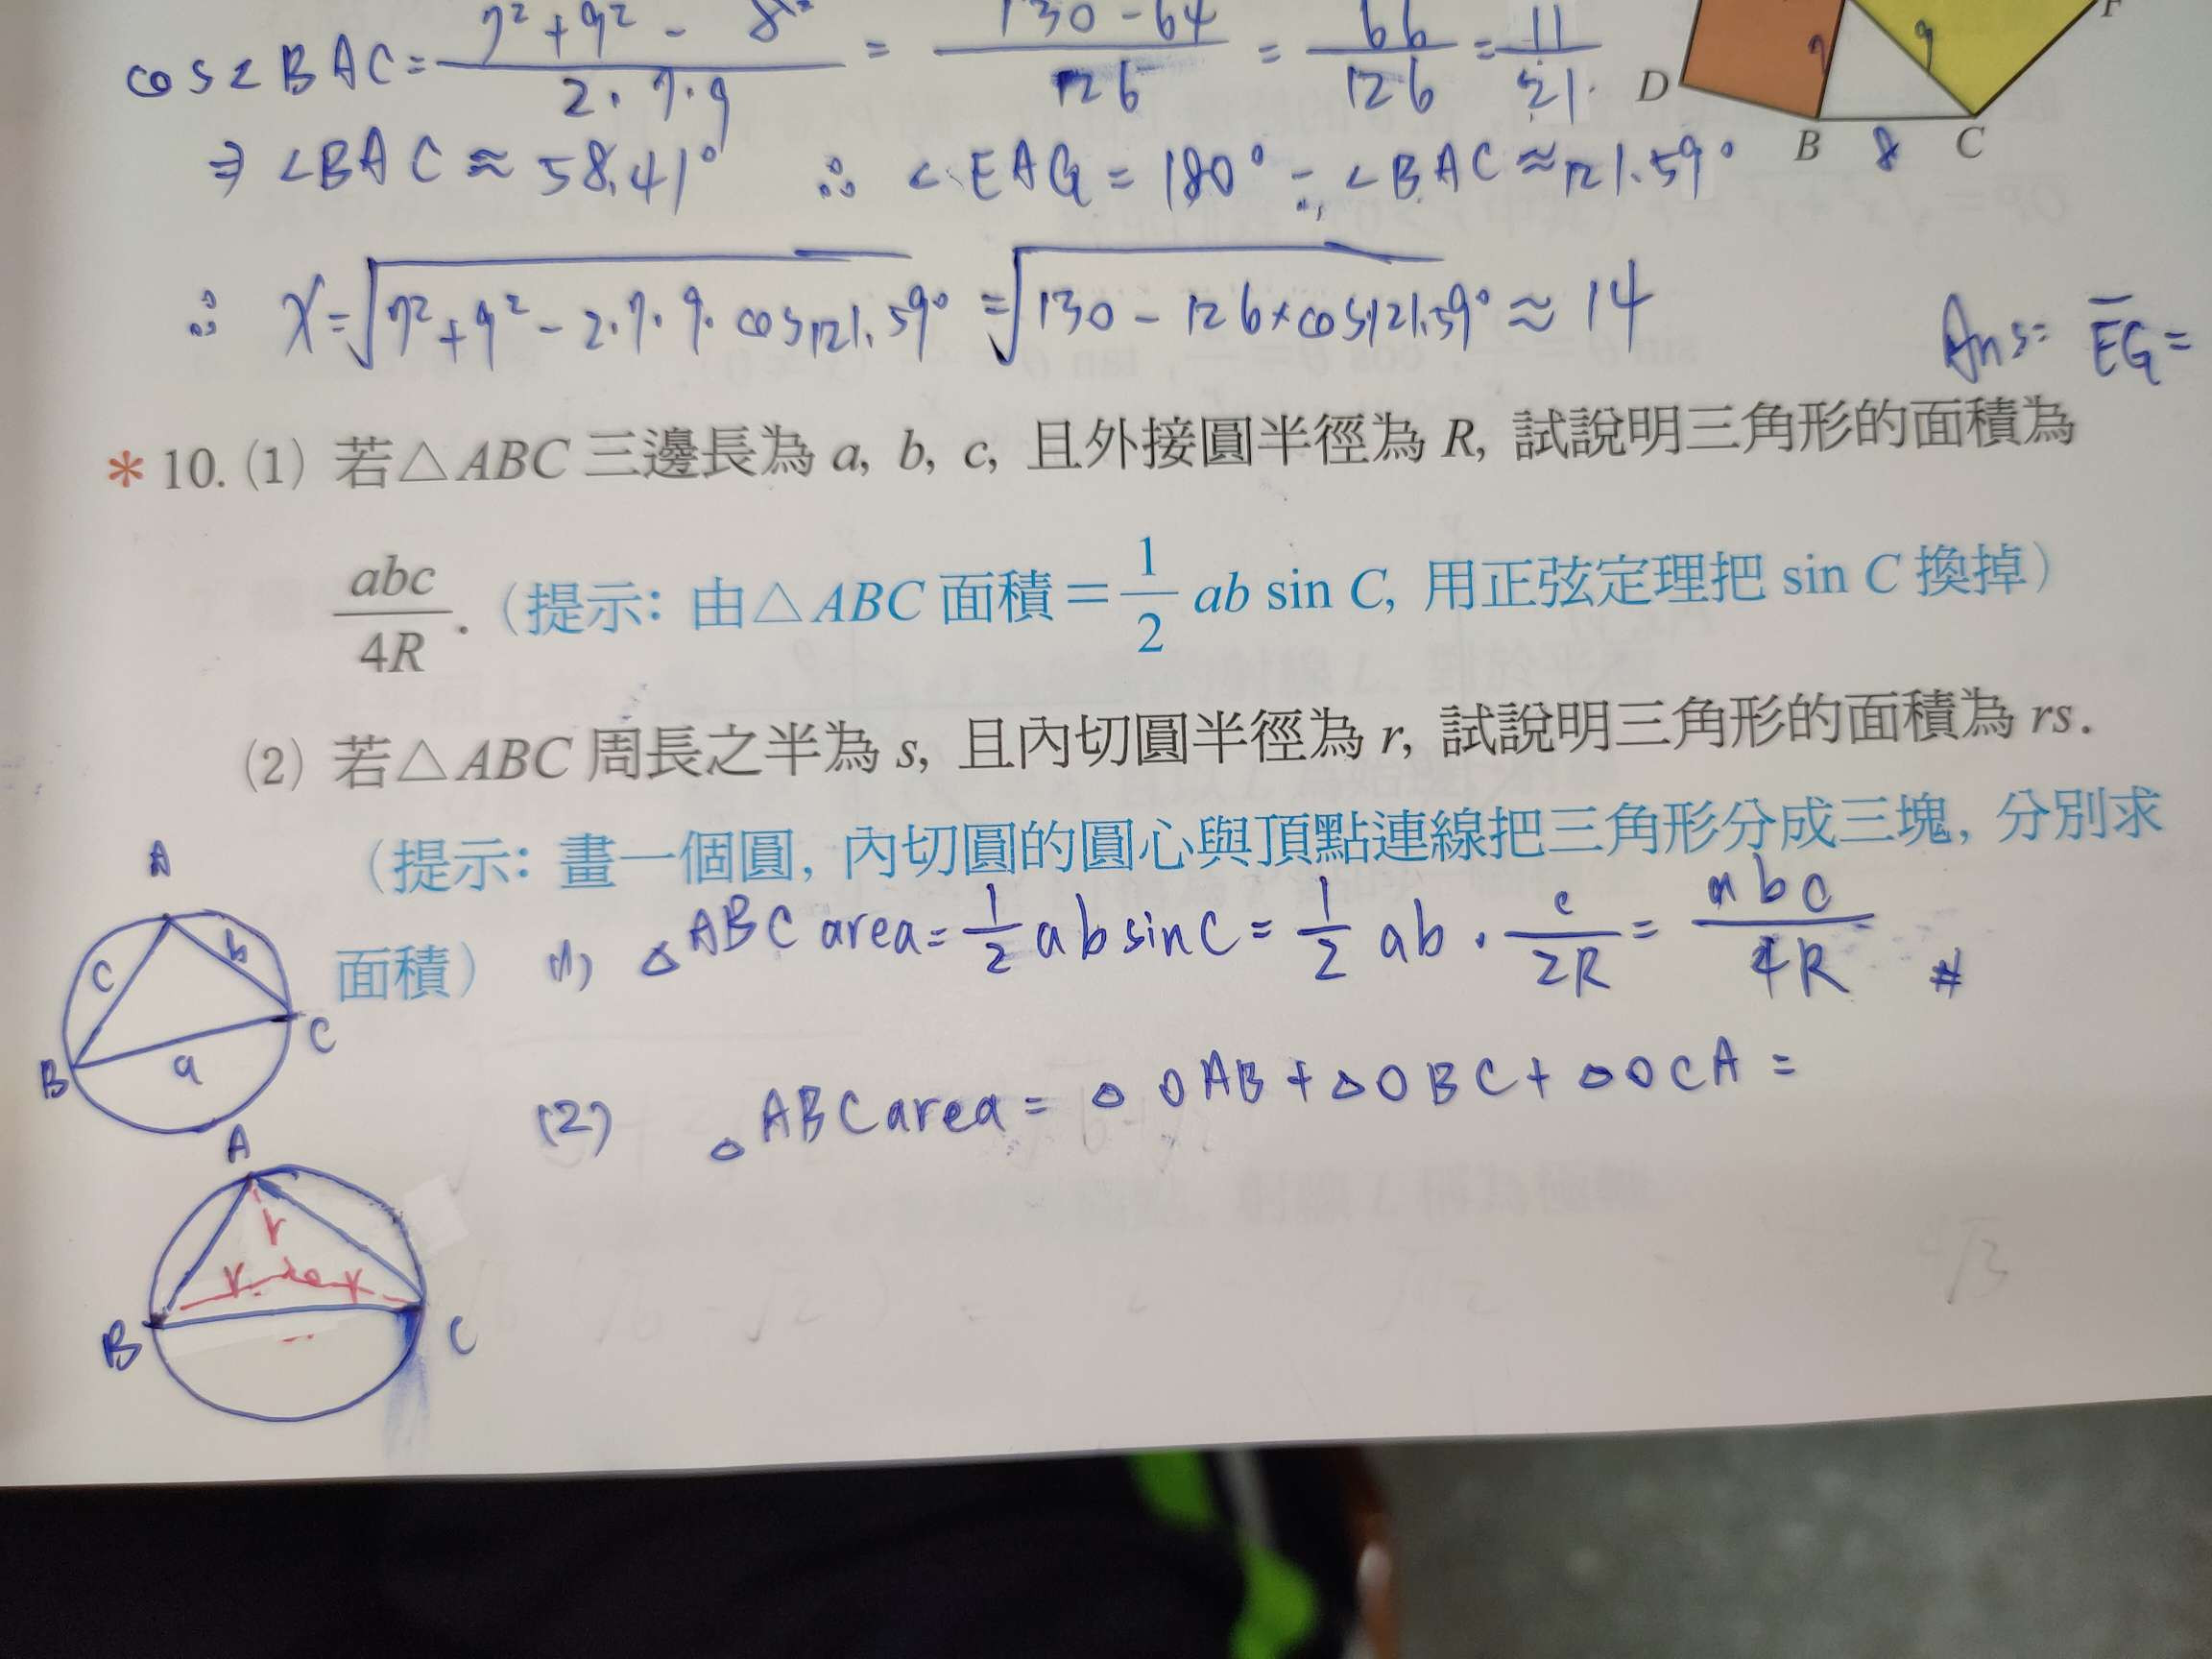 cos∠BAC = (7²+9²-8²)/(2·7·9) = (130-64)/126 = 66/126 = 11/21.
9
F
D
B 8 C
⇒ ∠BAC ≈ 58.41° ∴ ∠EAG = 180° - ∠BAC ≈ 121.59°
∴ x = √(7²+9²-2·7·9·cos121.59°) = √(130-126×cos121.59°) ≈ 14
Ans: EG =
*10. (1) 若△ABC 三邊長為 a, b, c, 且外接圓半徑為 R, 試說明三角形的面積為
abc/4R. (提示: 由△ABC 面積=1/2 ab sin C, 用正弦定理把 sin C 換掉)
(2) 若△ABC 周長之半為 s, 且內切圓半徑為 r, 試說明三角形的面積為 rs.
(提示: 畫一個圓, 內切圓的圓心與頂點連線把三角形分成三塊, 分別求
面積)
(1) △ABC area = 1/2 ab sinC = 1/2 ab · c/2R = abc/4R #
A
c b
B a C
(2) △ABC area = △OAB + △OBC + △OCA =
A
r
r r
B C